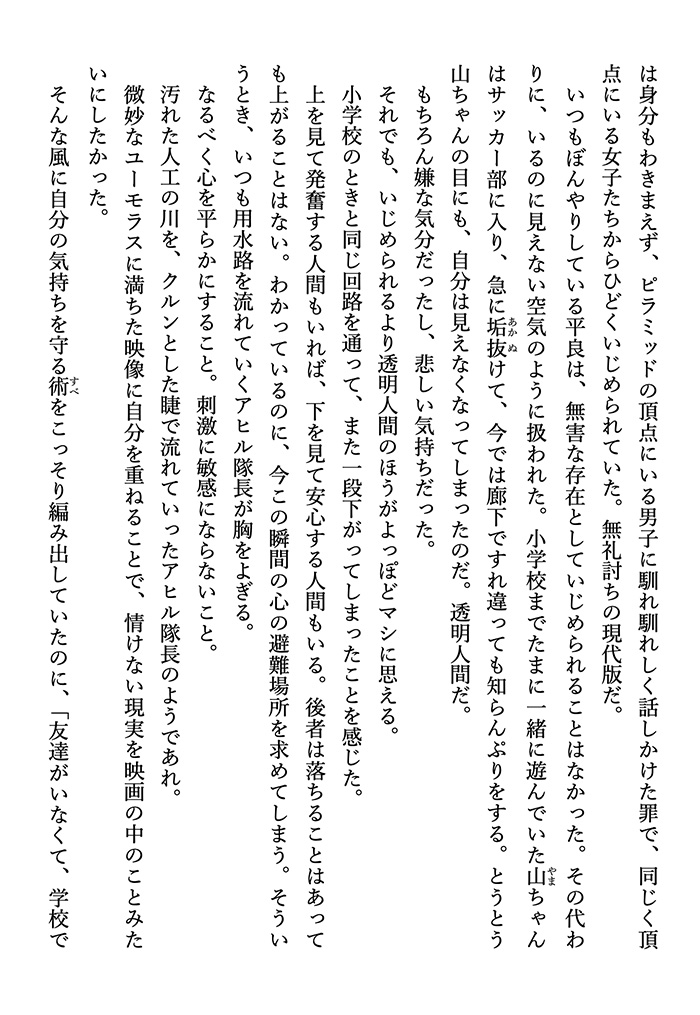 は身分もわきまえず、ピラミッドの頂点にいる男子に馴れ馴れしく話しかけた罪で、同じく頂
点にいる女子たちからひどくいじめられていた。無礼討ちの現代版だ。
いつもぼんやりしている平良は、無害な存在としていじめられることはなかった。その代わ
りに、いるのに見えない空気のように扱われた。小学校までたまに一緒に遊んでいた山ちゃん
はサッカー部に入り、急に垢抜けて、今では廊下ですれ違っても知らんぷりをする。とうとう
山ちゃんの目にも、自分は見えなくなってしまったのだ。透明人間だ。
もちろん嫌な気分だったし、悲しい気持ちだった。
それでも、いじめられるより透明人間のほうがよっぽどマシに思える。
小学校のときと同じ回路を通って、また一段下がってしまったことを感じた。
上を見て発奮する人間もいれば、下を見て安心する人間もいる。後者は落ちることはあって
も上がることはない。わかっているのに、今この瞬間の心の避難場所を求めてしまう。そうい
うとき、いつも用水路を流れていくアヒル隊長が胸をよぎる。
なるべく心を平らかにすること。刺激に敏感にならないこと。
汚れた人工の川を、クルンとした睫で流れていったアヒル隊長のようであれ。
微妙なユーモラスに満ちた映像に自分を重ねることで、情けない現実を映画の中のことみた
いにしたかった。
そんな風に自分の気持ちを守る術をこっそり編み出していたのに、「友達がいなくて、学校で